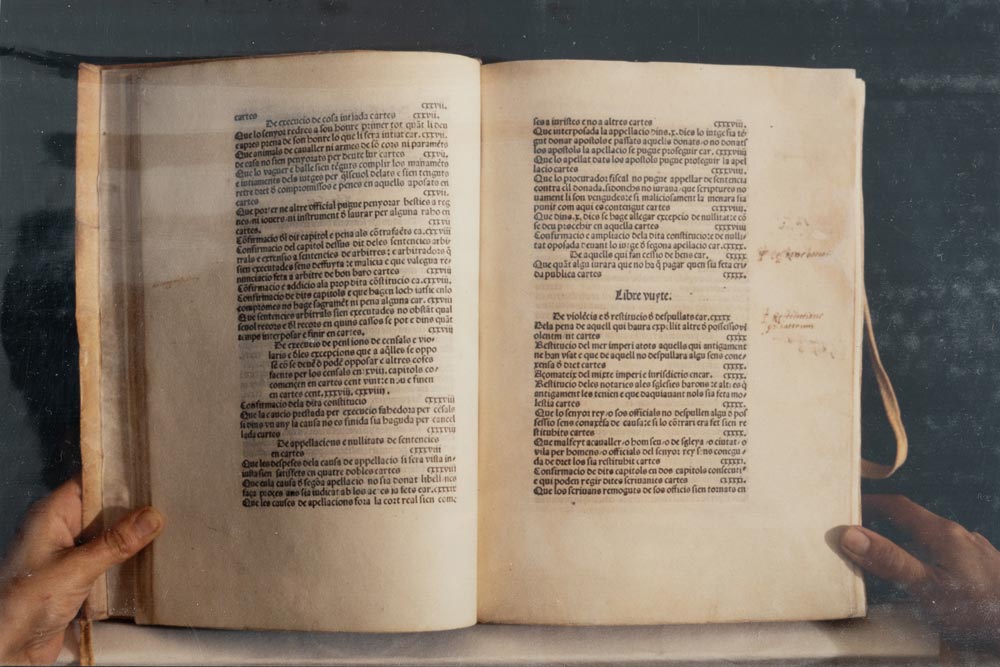 cxxvii.
cartes De execucio de cosa iutjada cartes cxxvii.
Que lo senyor redres a son homre primer tot quāt li deu
capres piena de son homre lo que li sera intiat car. cxxvii.
Que animals de cavaller ni armes de lo cors ni paramēts
de casa no sien penyorats per deute lur cartes cxxvii.
Que lo vaguer e balle sien tēguts complir los manamēts
e intiaments dels iutges per qlseuol delats e sien tenguts
retre dret ō compromissos e penes en aquello aposats en
cartes cxxvii.
Que porter ne altre official pugue penyorar besties a reg
nes ni iouers ni instrument ō laurar per alguna raho en
cartes. cxxvii
Cōfirmacio ōl dit capitol e pena als cōtrafaēts ca. cxxviii
Confirmacio del capitol dessus dit deles sentencies arbi-
trals e extensio a sentencies de arbitres: e arbitradors q̄
sien executades sens deffuyta e malicia e que valegua re-
nunciacio feta a arbitre de bon baro cartes cxxviii
Cōfirmacio e addicio ala prop dita cōstitucio ca. cxxviii.
Confirmacio de dits capitols e que hagen loch iatsie enlo
compromes no hage sagramēt ni pena alguna car. cxxviii
Que sentencies arbitrals sien executades no obstāt qual
seuol recors e ōl recors en quins cassos se pot e dins quāt
temps interposar e finir en cartes. cxxviii
De execucio de pensions de censals e vio-
laris e ōles excepcions que a aq̄lles se oppo
sē os se deuē ō podē opposar e altres coses
faents per los censals en .xviii. capitols co-
mencen en cartes cent vuit: e n.ou e finen
en cartes cent. xxxviii. cxxviiii.
Confirmacio dela dita constitucio cxxxviii
Que la caucio prestada per execucio fahedora per cēsals
si dins vn any la causa no es finida sia haguda per cancel
lada cartes cxxxviii
De appellacions e nullitats de sentencies
en cartes cxxxviii
Que les despeses dela causa de appellacio si sera vista in-
iusta sien satisfets en quatre dobles cartes cxxxviii
Que enla causa ō segōa apellacio no sia donat libell nes
faça procés ans sia iudicat ab los actes ia fets car. cxxxix
Que les causes de apellacions fora la cort real sien come
ses a iuristes e no a altres cartes cxxxviii.
Que interposada la appellacio dins .x. dies lo iutge sia tē-
gut donar apostols e passats aquells donats o no donats
los apostols la apellacio se pugue proseguir car. cxxxviii
Que lo apellat dats los apostols pugue proseguir la apel
lacio cartes cxxxviii.
Que lo procurador fiscal no pugue appellar de sentencia
contra ell donada. si donchs no iuraua: que scriptures no
uament li son vengudes: e si maliciosament la menara sia
punit com aqui es contengut cartes cxxxviii.
Que dins .x. dies se hage allegar excepcio de nullitat: e cō
se deu procehir en aquella cartes cxxxviii
Confirmacio e ampliacio dela dita constitucio: e de nulli-
tat oposada deuant lo iutge ō segona apellacio car. cxxxx.
De aquells qui fan cessio de bens car. cxxxx
Que quāt algu iurara que no ha q̄ pagar quen sia feta cri-
da publica cartes cxxxx.
Libre vuyte.
De violēcia e ō restitucio ō despullats car. cxxxx
Dela pena de aquell qui haura expellit altre ō possessio vi
olentment cartes cxxxx
Restitucio del mer imperi a tots aquells qui antigament
ne han vsat e que de aquell no despullara algu sens cone-
xensa ō dret cartes cxxxx.
Acomateix del mixte imperi e iurisdictio en car. cxxxx.
Restitucio deles notaries ales sglesies barons: e altres q̄
antigament les tenien e que daqui auant nols sia feta mo-
lestia cartes cxxxx.
Que lo senyor rey o sos officials no despullen algu ō pos
sessio sens conaxēsa de causa: e si lo cōtrari era fet sien re
stituhits cartes cxxxx.
Que malfeyt a cauallers o hom seu o de sgleya o ciutat o
vila per homens o officials del senyor rey sens conegu-
da de dret los sia restituhit cartes cxxxx.
Confirmacio de dits capitols en dos capitols consecutiu-
e qui poden regir dites scriuanies cartes cxxxxi.
Que los scriuans remoguts de sos officis sien tornats en